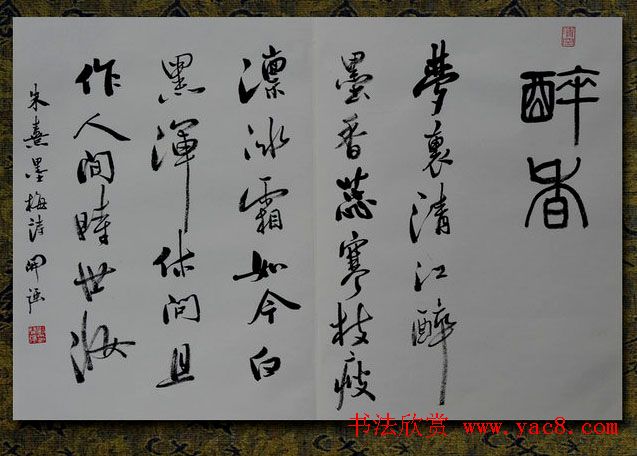 醉香
夢裏清江醉
墨香蕊寒枝瘦
凛冰霜如今白
黑渾休問且
作人間時世妝
朱熹墨梅詩
书法欣赏 www.yac8.com